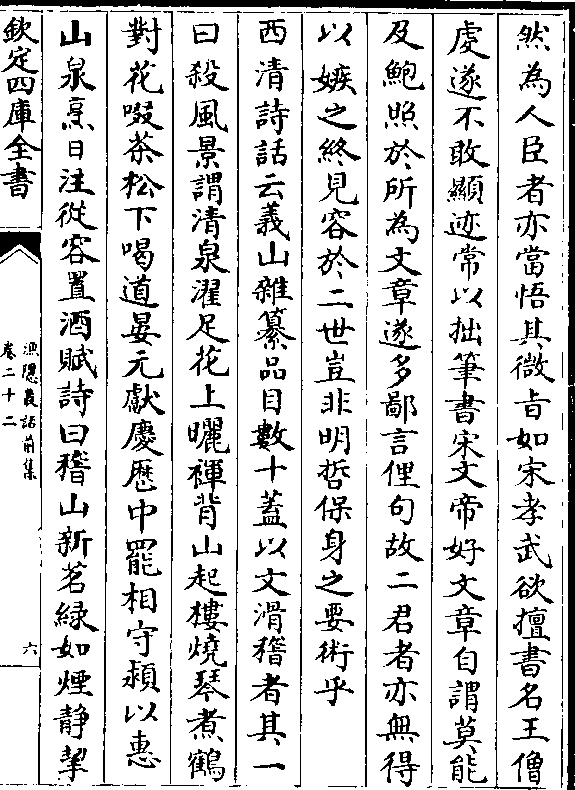 然為人臣者亦當悟其微旨如宋孝武欲擅書名王僧
虔遂不敢顯迹常以拙筆書宋文帝好文章自謂莫能
及鮑照於所為文章遂多鄙言俚句故二君者亦無得
以嫉之終見容於二世豈非明哲保身之要術乎
西清詩話云義山雜纂品目數十蓋以文滑稽者其一
曰殺風景謂清泉濯足花上曬褌背山起樓燒琴煮鶴
對花啜茶松下喝道晏元獻慶歴中罷相守潁以惠
山泉烹日注從容置酒賦詩曰稽山新茗緑如煙静挈
欽定四庫全書
漁隱叢話前集
卷二十二
六